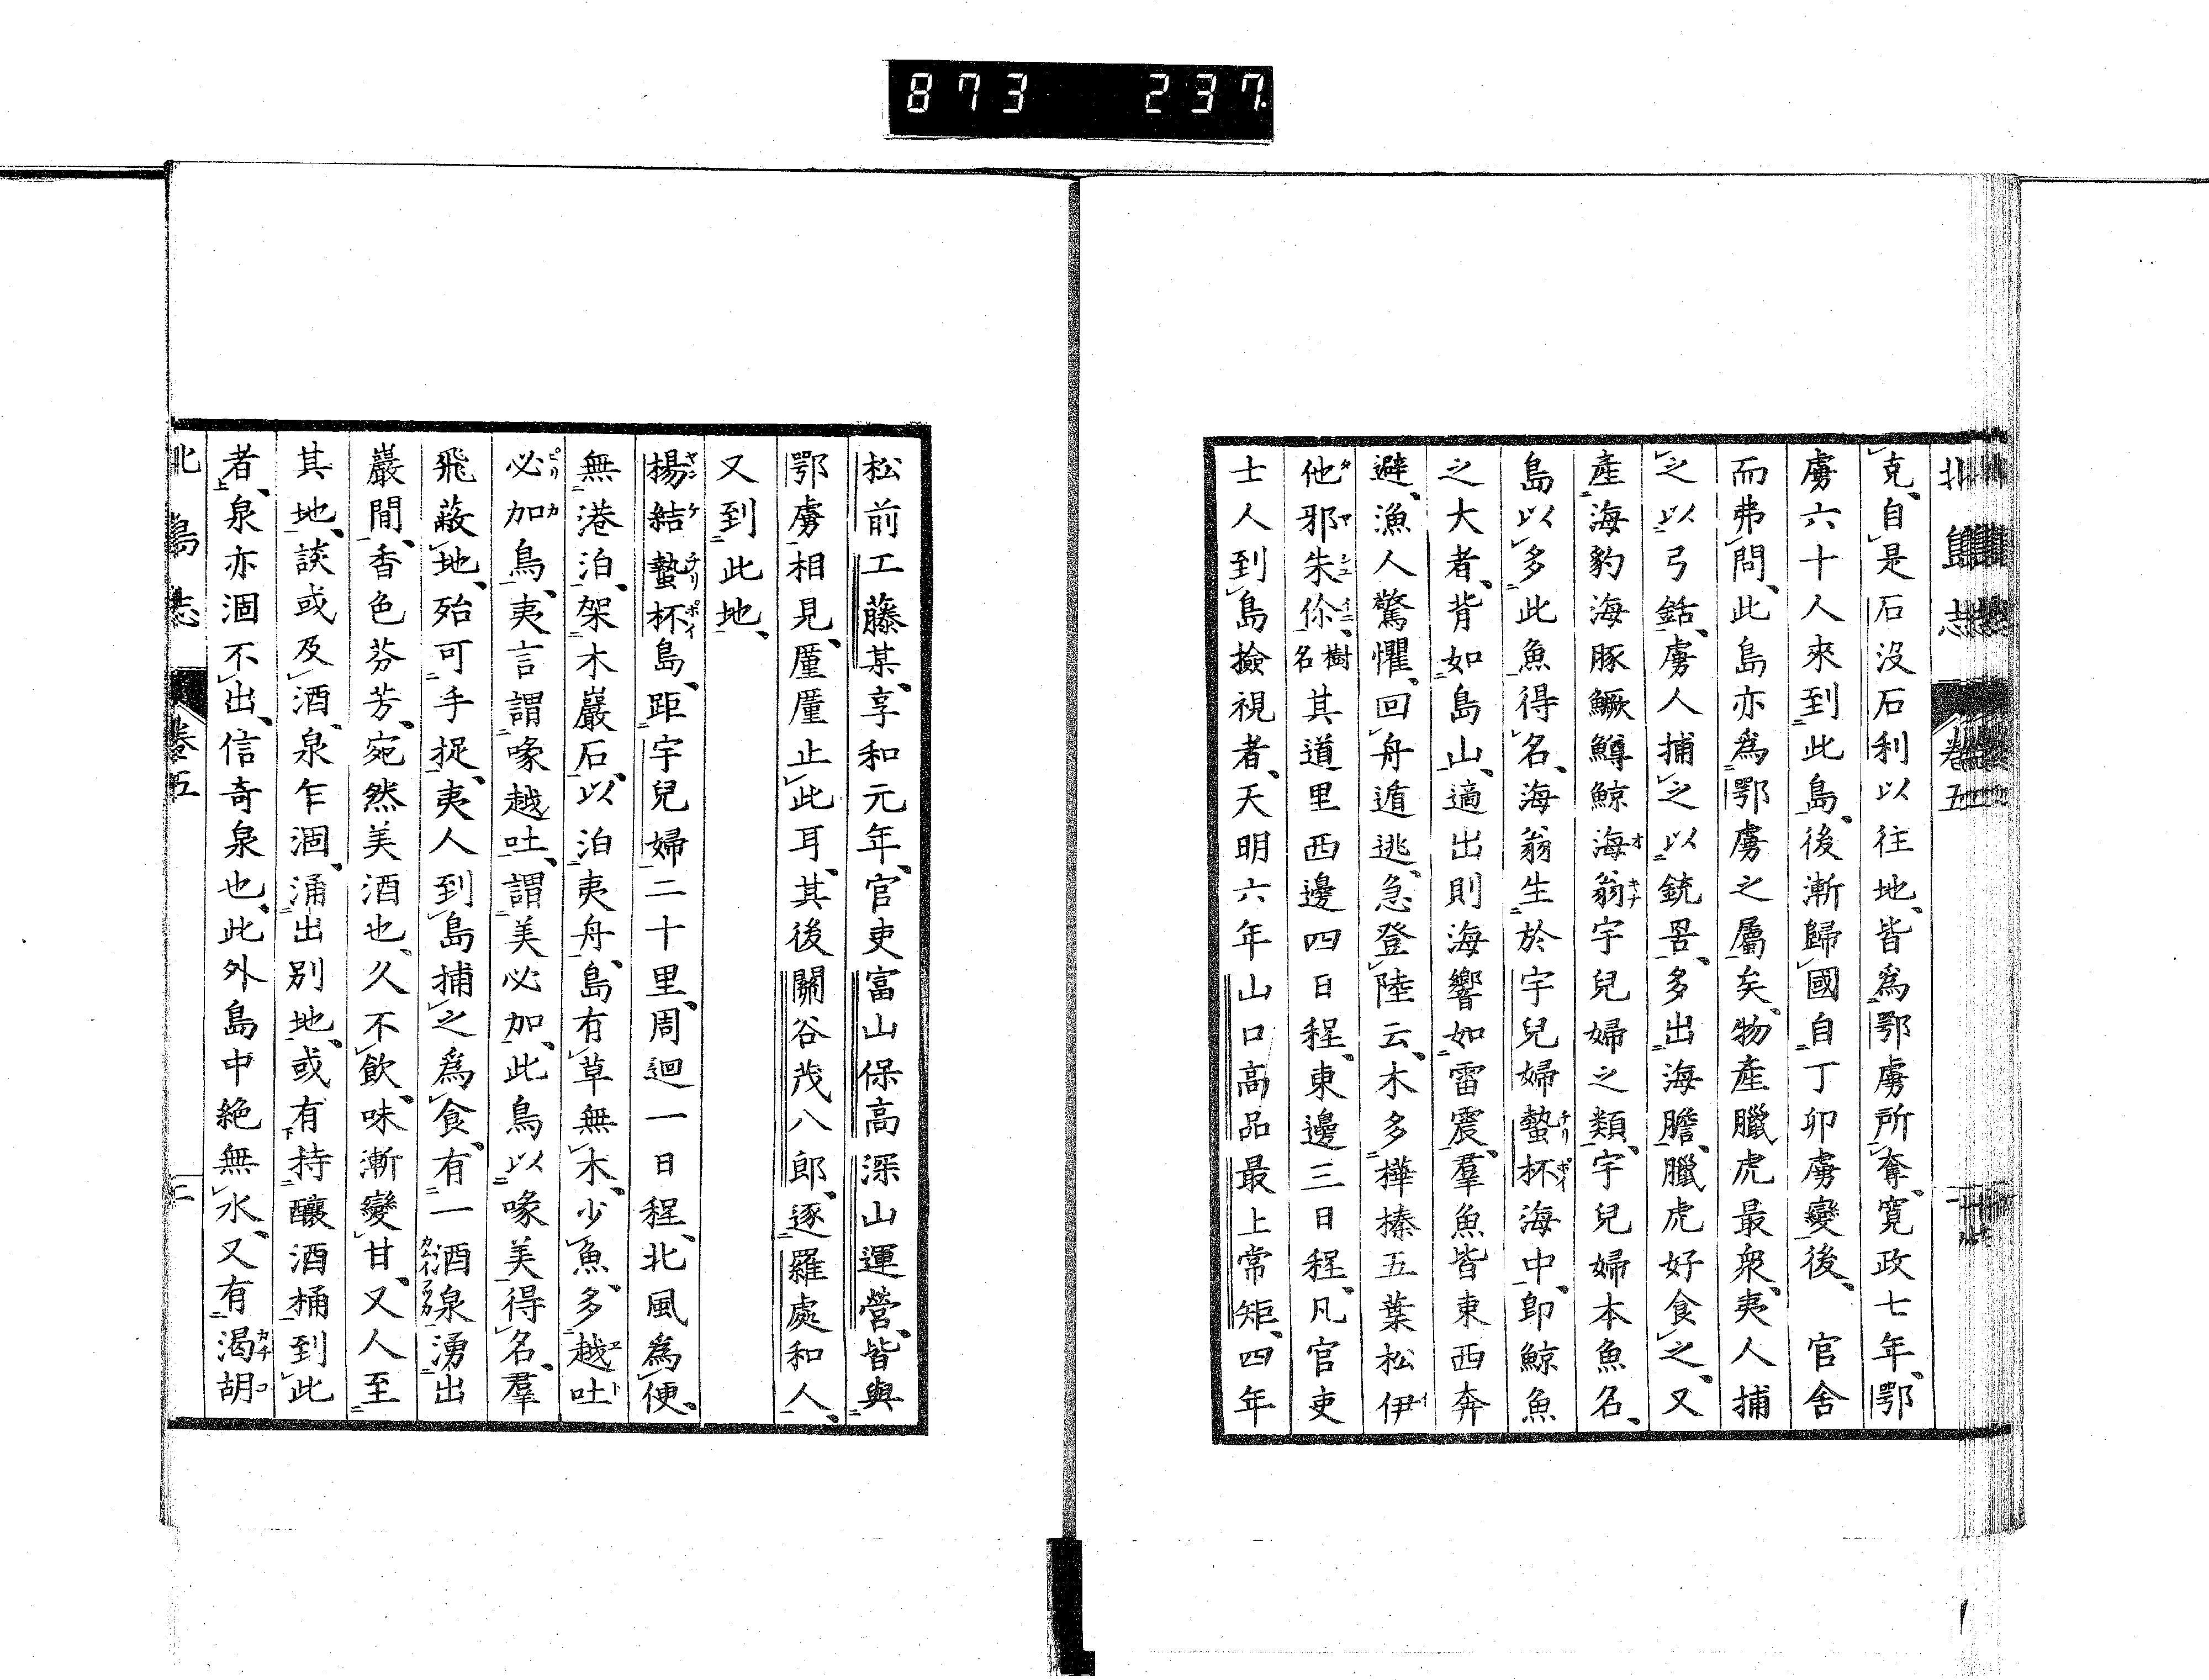 873 237.
北島志 卷五
克、自是石沒石利以往地、皆爲鄂虜所奪、寛政七年、鄂
虜六十人來到此島、後漸歸國、自丁卯虜變後、官舍
而弗問、此島亦爲鄂虜之屬矣、物產臘虎最衆、夷人捕
之以弓銛、虜人捕之以銃罟、多出海膽、臘虎好食之、又
產海豹海豚鱖鱒鯨海翁宇兒婦之類、宇兒婦本魚名、
島以多此魚得名、海翁生於宇兒婦蟄杯海中、卽鯨魚
之大者、背如島山、適出則海響如雷震、羣魚皆東西奔
避、漁人驚懼、回舟遁逃、急登陸云、木多樺榛五葉松伊
他邪朱你、樹名其道里西邊四日程、東邊三日程、凡官吏
士人到島撿視者、天明六年山口高品最上常矩、四年
松前工藤某、享和元年、官吏富山保高深山運營、皆與
鄂虜相見、厪厪止此耳、其後關谷茂八郎、逐羅處和人、
又到此地、
楊結蟄杯島、距宇兒婦二十里、周迴一日程、北風爲便、
無港泊、架木巖石、以泊夷舟、島有草無木、少魚、多越吐
必加鳥、夷言謂喙越吐、謂美必加、此鳥以喙美得名、羣
飛蔽地、殆可手捉、夷人到島捕之爲食、有一酒泉湧出
巖間、香色芬芳、宛然美酒也、久不飲、味漸變甘、又人至
其地、談或及酒、泉乍涸、涌出別地、或有持釀酒桶到此
者、泉亦涸不出、信奇泉也、此外島中絶無水、又有渴胡
北島志 卷五 三